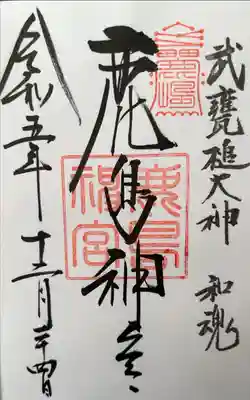 武甕槌大神 和魂
鹿島神宮
鹿島神宮
令和五年 十二月二十四日